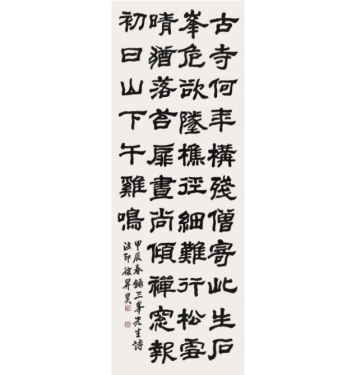 古寺何年構殘僧寄此生石
峯危欲墜樵徑細難行松雲
晴猶落苔扉晝尚傾禪窓報
初日山下午雞鳴
甲辰春錄三峯先生詩
法印徐昇昊